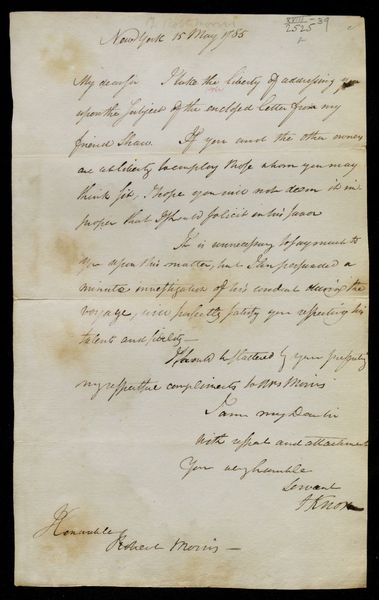 XVIII-39
2525
New York 15 May 1785
My dear sir I take the liberty of addressing you
upon the subject of the enclosed letter from my
friend Shaw. If you and the other owners
are at liberty to employ those whom you may
think fit, I hope you will not deem it im
proper that I should solicit in his favor
It is unnecessary to say much to
you upon this matter, but I am persuaded a
minute investigation of his conduct during the
voyage, will perfectly satisfy you respecting his
talents and fidelity—
I should be flattered by your presenting
my respectful compliments to Mrs Morris
I am my Dear sir
with respect and attachment
Your very humble
Servant
HKnox
Honorable
Robert Morris—